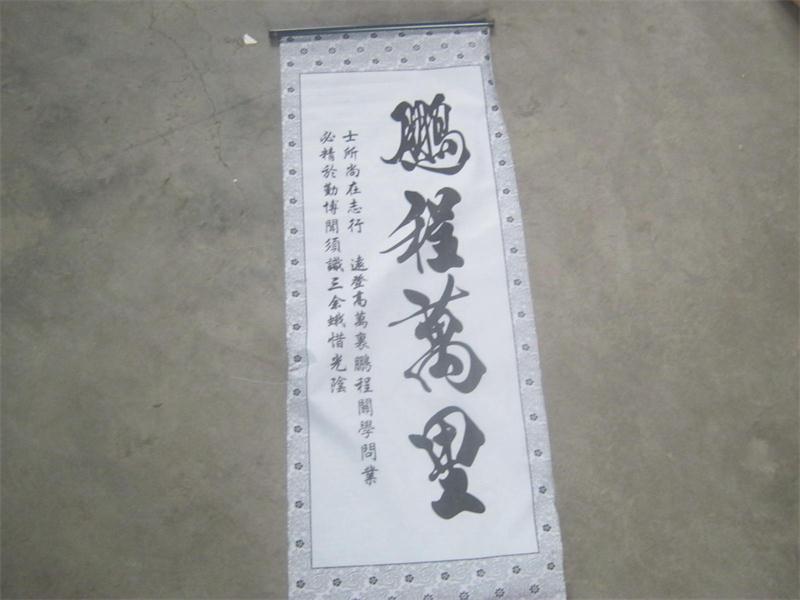 鹏程萬里
士所尚在志行 遠登高萬裏鵬程關學問業
必精於勤博聞須識三余蛾惜光陰